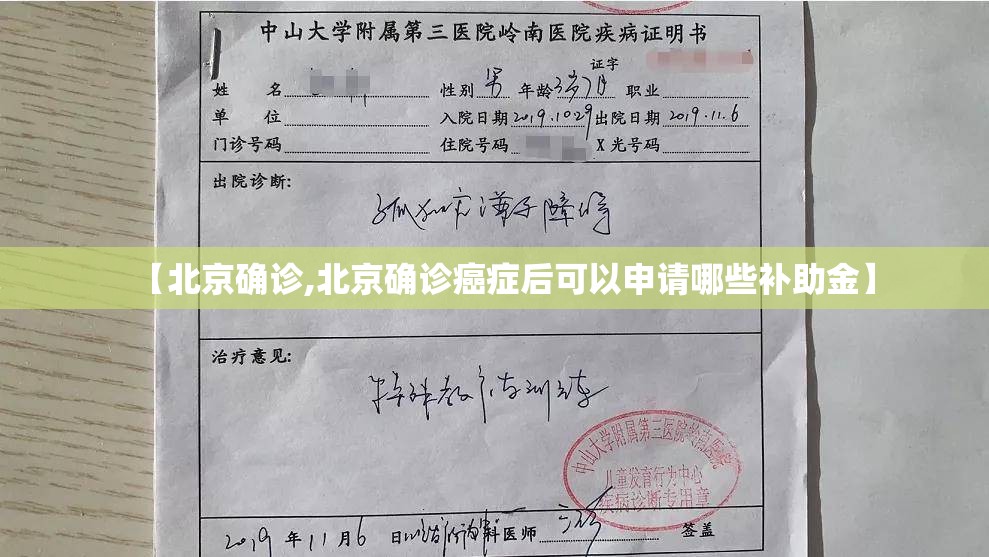 中山大学附属第三医院岭南医院疾病证明书
证字
姓 名 性别 男 年龄 3岁7月 职业
单 位 入院日期 2019.10.29 出院日期 2019.11.6
门诊号码 住院号码 X光号码
出院诊断:
孤独症谱系障碍
【北京确诊,北京确诊癌症后可以申请哪些补助金】
治疗意见:
特殊教育训练
中山大学附属第三医院岭南医院
儿童发育行为中心
疾病诊断专用章
2019 年 11 月 6 日 科医师 签盖